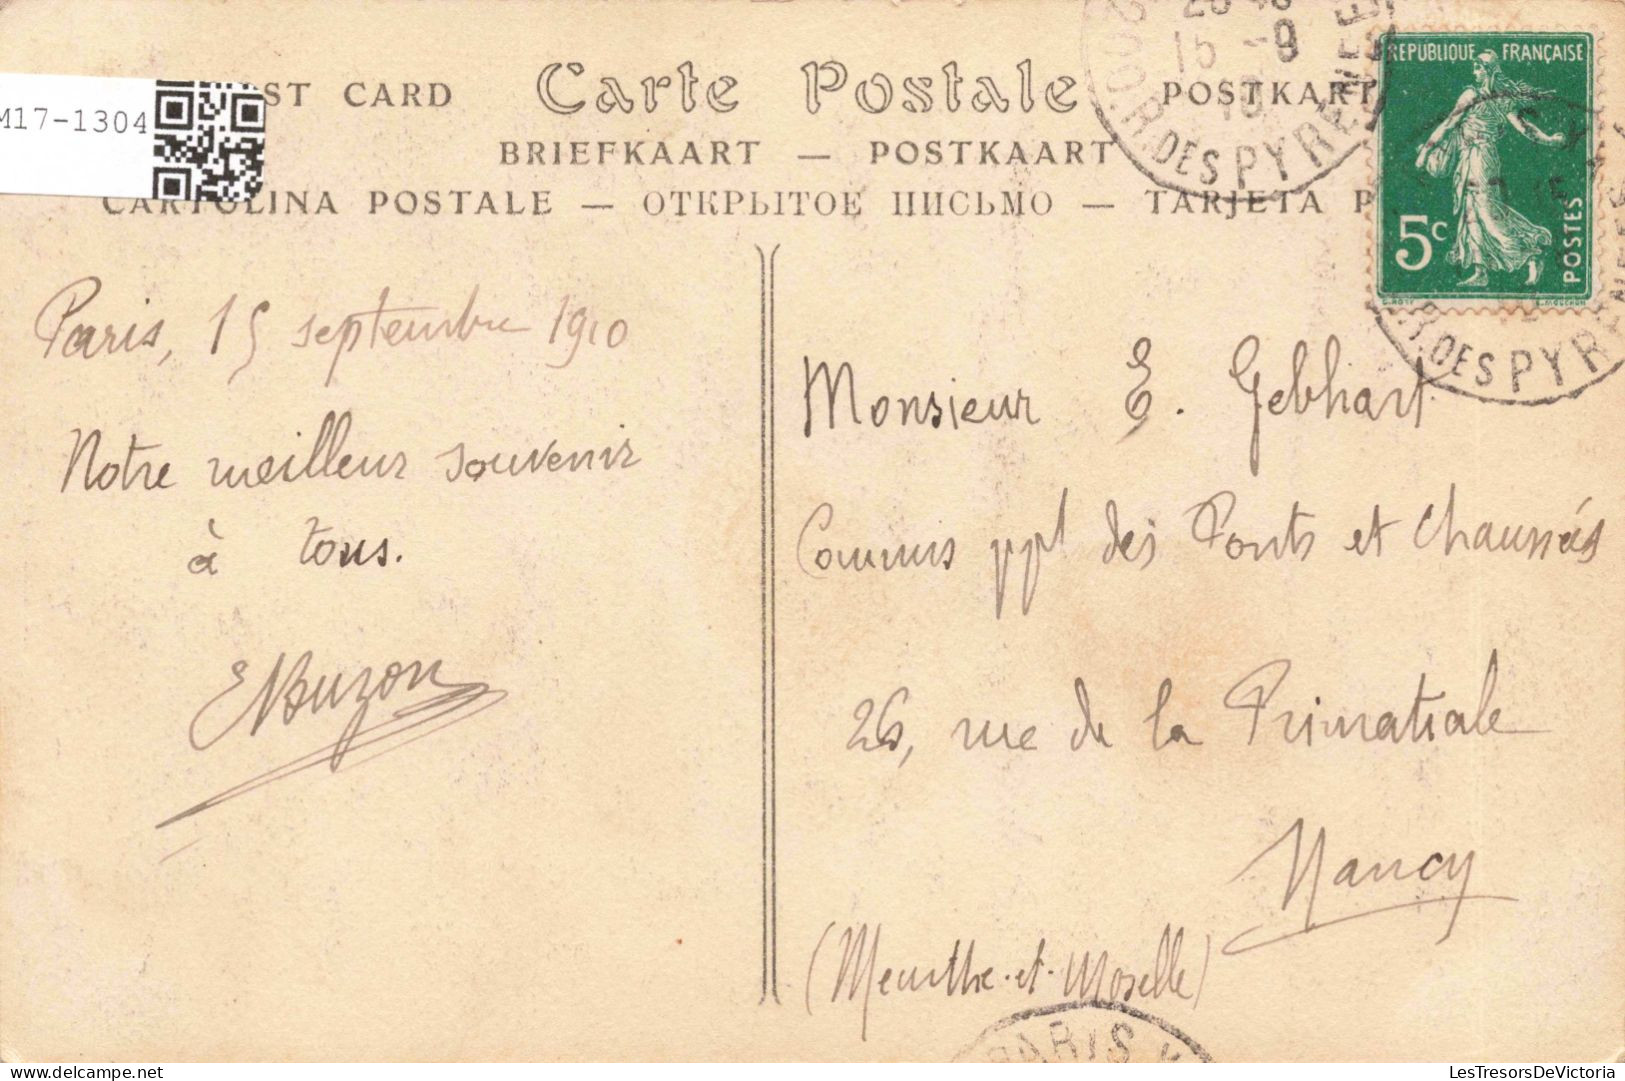 M17-1304
ST CARD Carte Postale POSTKART
BRIEFKAART — POSTKAART
CARTOLINA POSTALE — ОТКРЫТОЕ ПИСЬМО — TARJETA P
REPUBLIQUE FRANÇAISE
5c
POSTES
15 -9
10
R. DES PYRENEES
R. DES PYRENEES
Paris, 15 septembre 1910
Notre meilleur souvenir
à tous.
EBuzon
Monsieur E. Gebhart
Commis ppl des Ponts et Chaussées
26, rue de la Primatiale
Nancy
(Meurthe-et-Moselle)
PARIS
LesTresorsDeVictoria